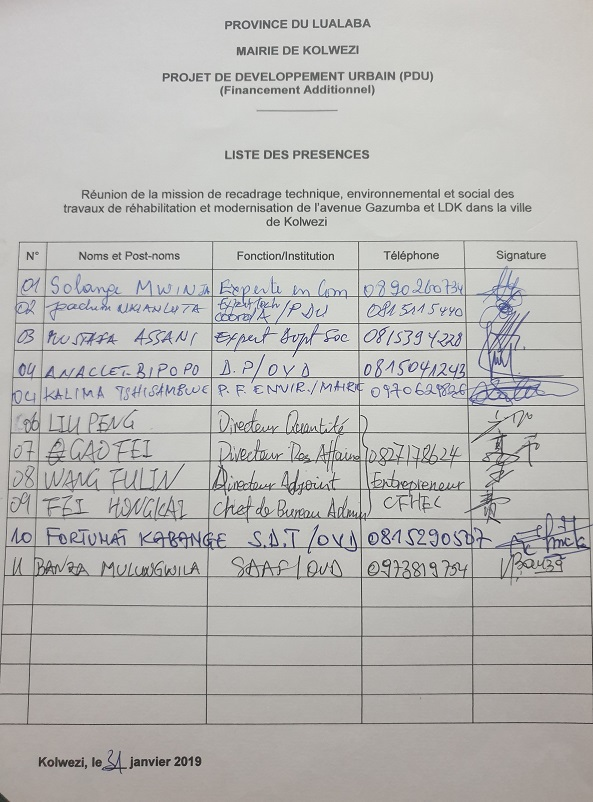 PROVINCE DU LUALABA
MAIRIE DE KOLWEZI
PROJET DE DEVELOPPEMENT URBAIN (PDU)
(Financement Additionnel)
LISTE DES PRESENCES
Réunion de la mission de recadrage technique, environnemental et social des
travaux de réhabilitation et modernisation de l'avenue Gazumba et LDK dans la ville
de Kolwezi
N° Noms et Post-noms Fonction/Institution Téléphone Signature
01 Solange MWINJA Experte en Com 0890260734
02 Joachim NKIANLUTA Expert Tech /PDU 0815115440
03 MUSTAFA ASSANI Expert Dvpt Soc 0815394228
04 ANACLET BIPOPO D.P/OVD 0815041243
04 KALIMA TSHISAMBWE P.F. ENVIR./MAIRIE 0970629826
06 LIU PENG Directeur Quantité
07 GAO FEI Directeur Des Affaire 0827178624
08 WANG FULIN Directeur Adjoint Entrepreneur
09 FEI HONGKAI Chef de Bureau Admin
10 FORTUNAT KABANGE S.D.T/OVD 0815290507
11 BANZA MULUNGWILA SAAF/OVD 0973819754 Banza
Kolwezi, le 31 janvier 2019